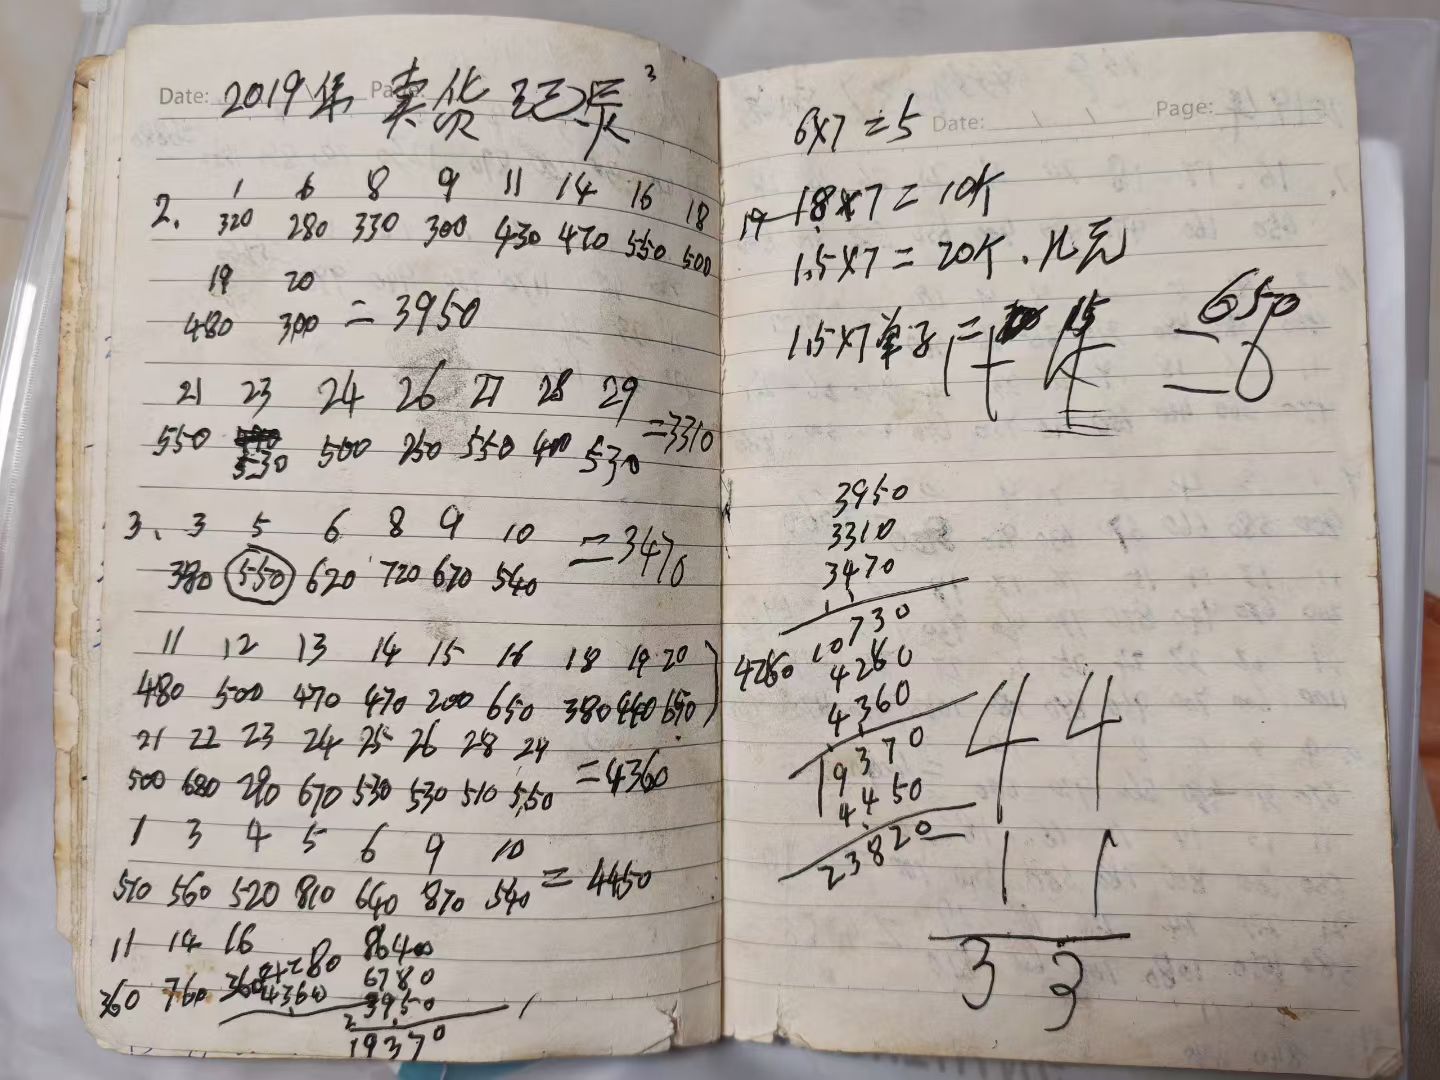 Date: 2019年 Page: 卖货记录 3
2. 1 6 8 9 11 14 16 18
320 280 330 300 430 470 550 500
19 20
480 300 = 3950
21 23 24 26 27 28 29
550 530 500 250 550 400 530 = 3310
3. 3 5 6 8 9 10
380 550 620 720 670 540 = 3470
11 12 13 14 15 16 18 19 20
480 500 470 470 200 650 380 440 650
21 22 23 24 25 26 28 29
500 680 290 670 530 530 510 550 = 4360
1 3 4 5 6 9 10
510 560 520 810 640 870 540 = 4450
11 14 16
360 760 360
4280
4360
8640
6780
3950
19370
6x7 = 5 Date: / / Page:
18x7 = 10K
1.5x7 = 20K
1.5x7单子 =
650
3950
3310
3470
10730
4260 4260
4360
19370
4450
23820
44
11
33